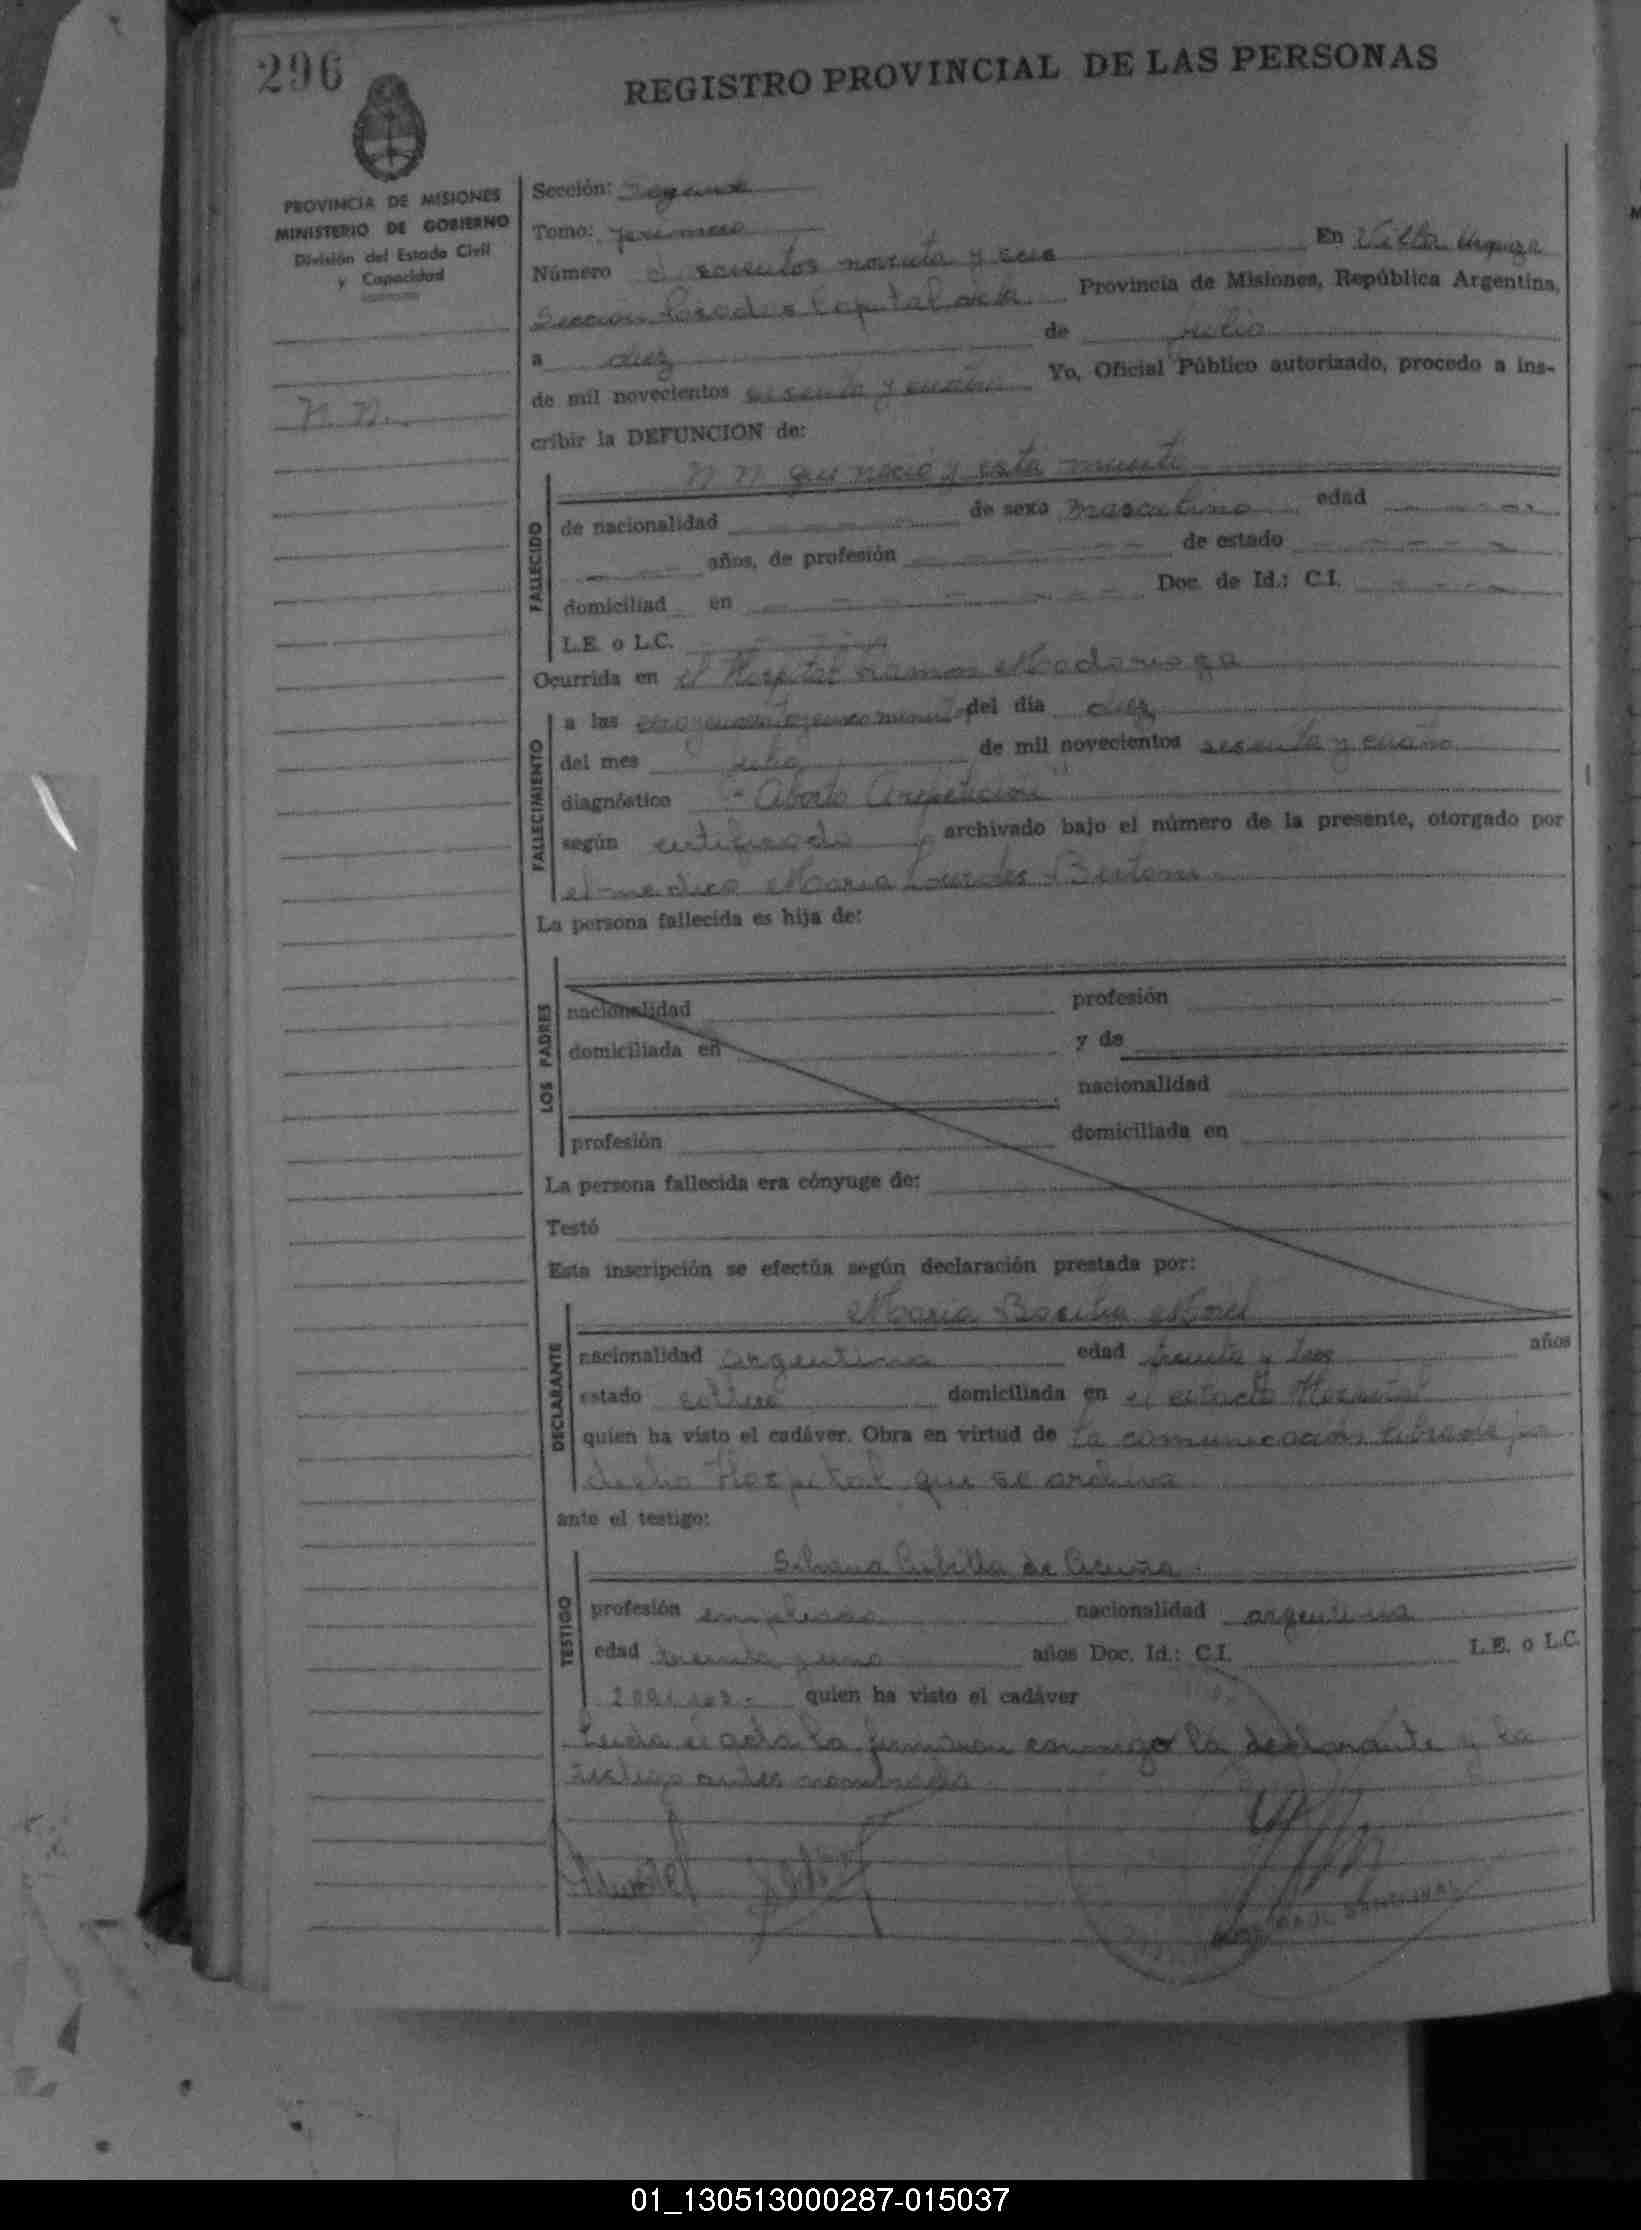 296
REGISTRO PROVINCIAL DE LAS PERSONAS
PROVINCIA DE MISIONES
MINISTERIO DE GOBIERNO
División del Estado Civil
y Capacidad
N. N.
Sección: Segunda
Tomo: primero
En Villa Urquiza
Número doscientos noventa y seis
Sección Posadas Capital de la Provincia de Misiones, República Argentina,
a diez de julio
de mil novecientos sesenta y cuatro Yo, Oficial Público autorizado, procedo a ins-
cribir la DEFUNCION de:
N N que nació y está muerto
FALLECIDO
de nacionalidad de sexo masculino edad
años, de profesión de estado
domiciliad en Doc. de Id.: C.I.
L.E. o L.C.
Ocurrida en el Hospital Ramon Madariaga
FALLECIMIENTO
a las del día diez
del mes julio de mil novecientos sesenta y cuatro
diagnóstico "Aborto a repetición"
según certificado archivado bajo el número de la presente, otorgado por
el médico Maria Lourdes Bertoni
La persona fallecida es hija de:
LOS PADRES
nacionalidad profesión
domiciliada en y de
nacionalidad
profesión domiciliada en
La persona fallecida era cónyuge de:
Testó
Esta inscripción se efectúa según declaración prestada por:
DECLARANTE
Maria Morel
nacionalidad argentina edad treinta y tres años
estado soltera domiciliada en el citado Hospital
quien ha visto el cadáver. Obra en virtud de la comunicación librada por
dicho Hospital que se archiva
ante el testigo:
TESTIGO
Silvana Cubilla de Acuña
profesión empleada nacionalidad argentina
edad treinta y uno años Doc. Id.: C.I. L.E. o L.C.
quien ha visto el cadáver
Leida el acta la firmaron conmigo la declarante y la
testigo antes nombrada
RAUL SANDOVAL
01_130513000287-015037